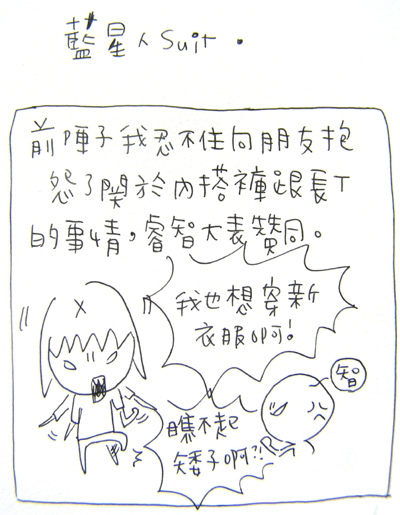 藍星人Suit.
前陣子我忍不住向朋友抱
怨了關於內搭褲跟長T
的事情，睿智大表贊同。
我也想穿新
衣服啊!
智
瞧不起
矮子啊?!